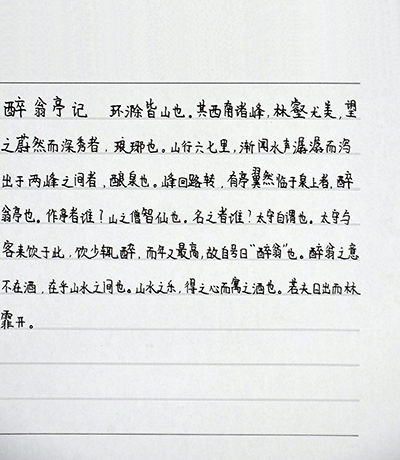 醉翁亭记 环滁皆山也。其西南诸峰,林壑尤美,望
之蔚然而深秀者,琅琊也。山行六七里,渐闻水声潺潺而泻
出于两峰之间者,酿泉也。峰回路转,有亭翼然临于泉上者,醉
翁亭也。作亭者谁?山之僧智仙也。名之者谁?太守自谓也。太守与
客来饮于此,饮少辄醉,而年又最高,故自号曰“醉翁”也。醉翁之意
不在酒,在乎山水之间也。山水之乐,得之心而寓之酒也。若夫日出而林
霏开。